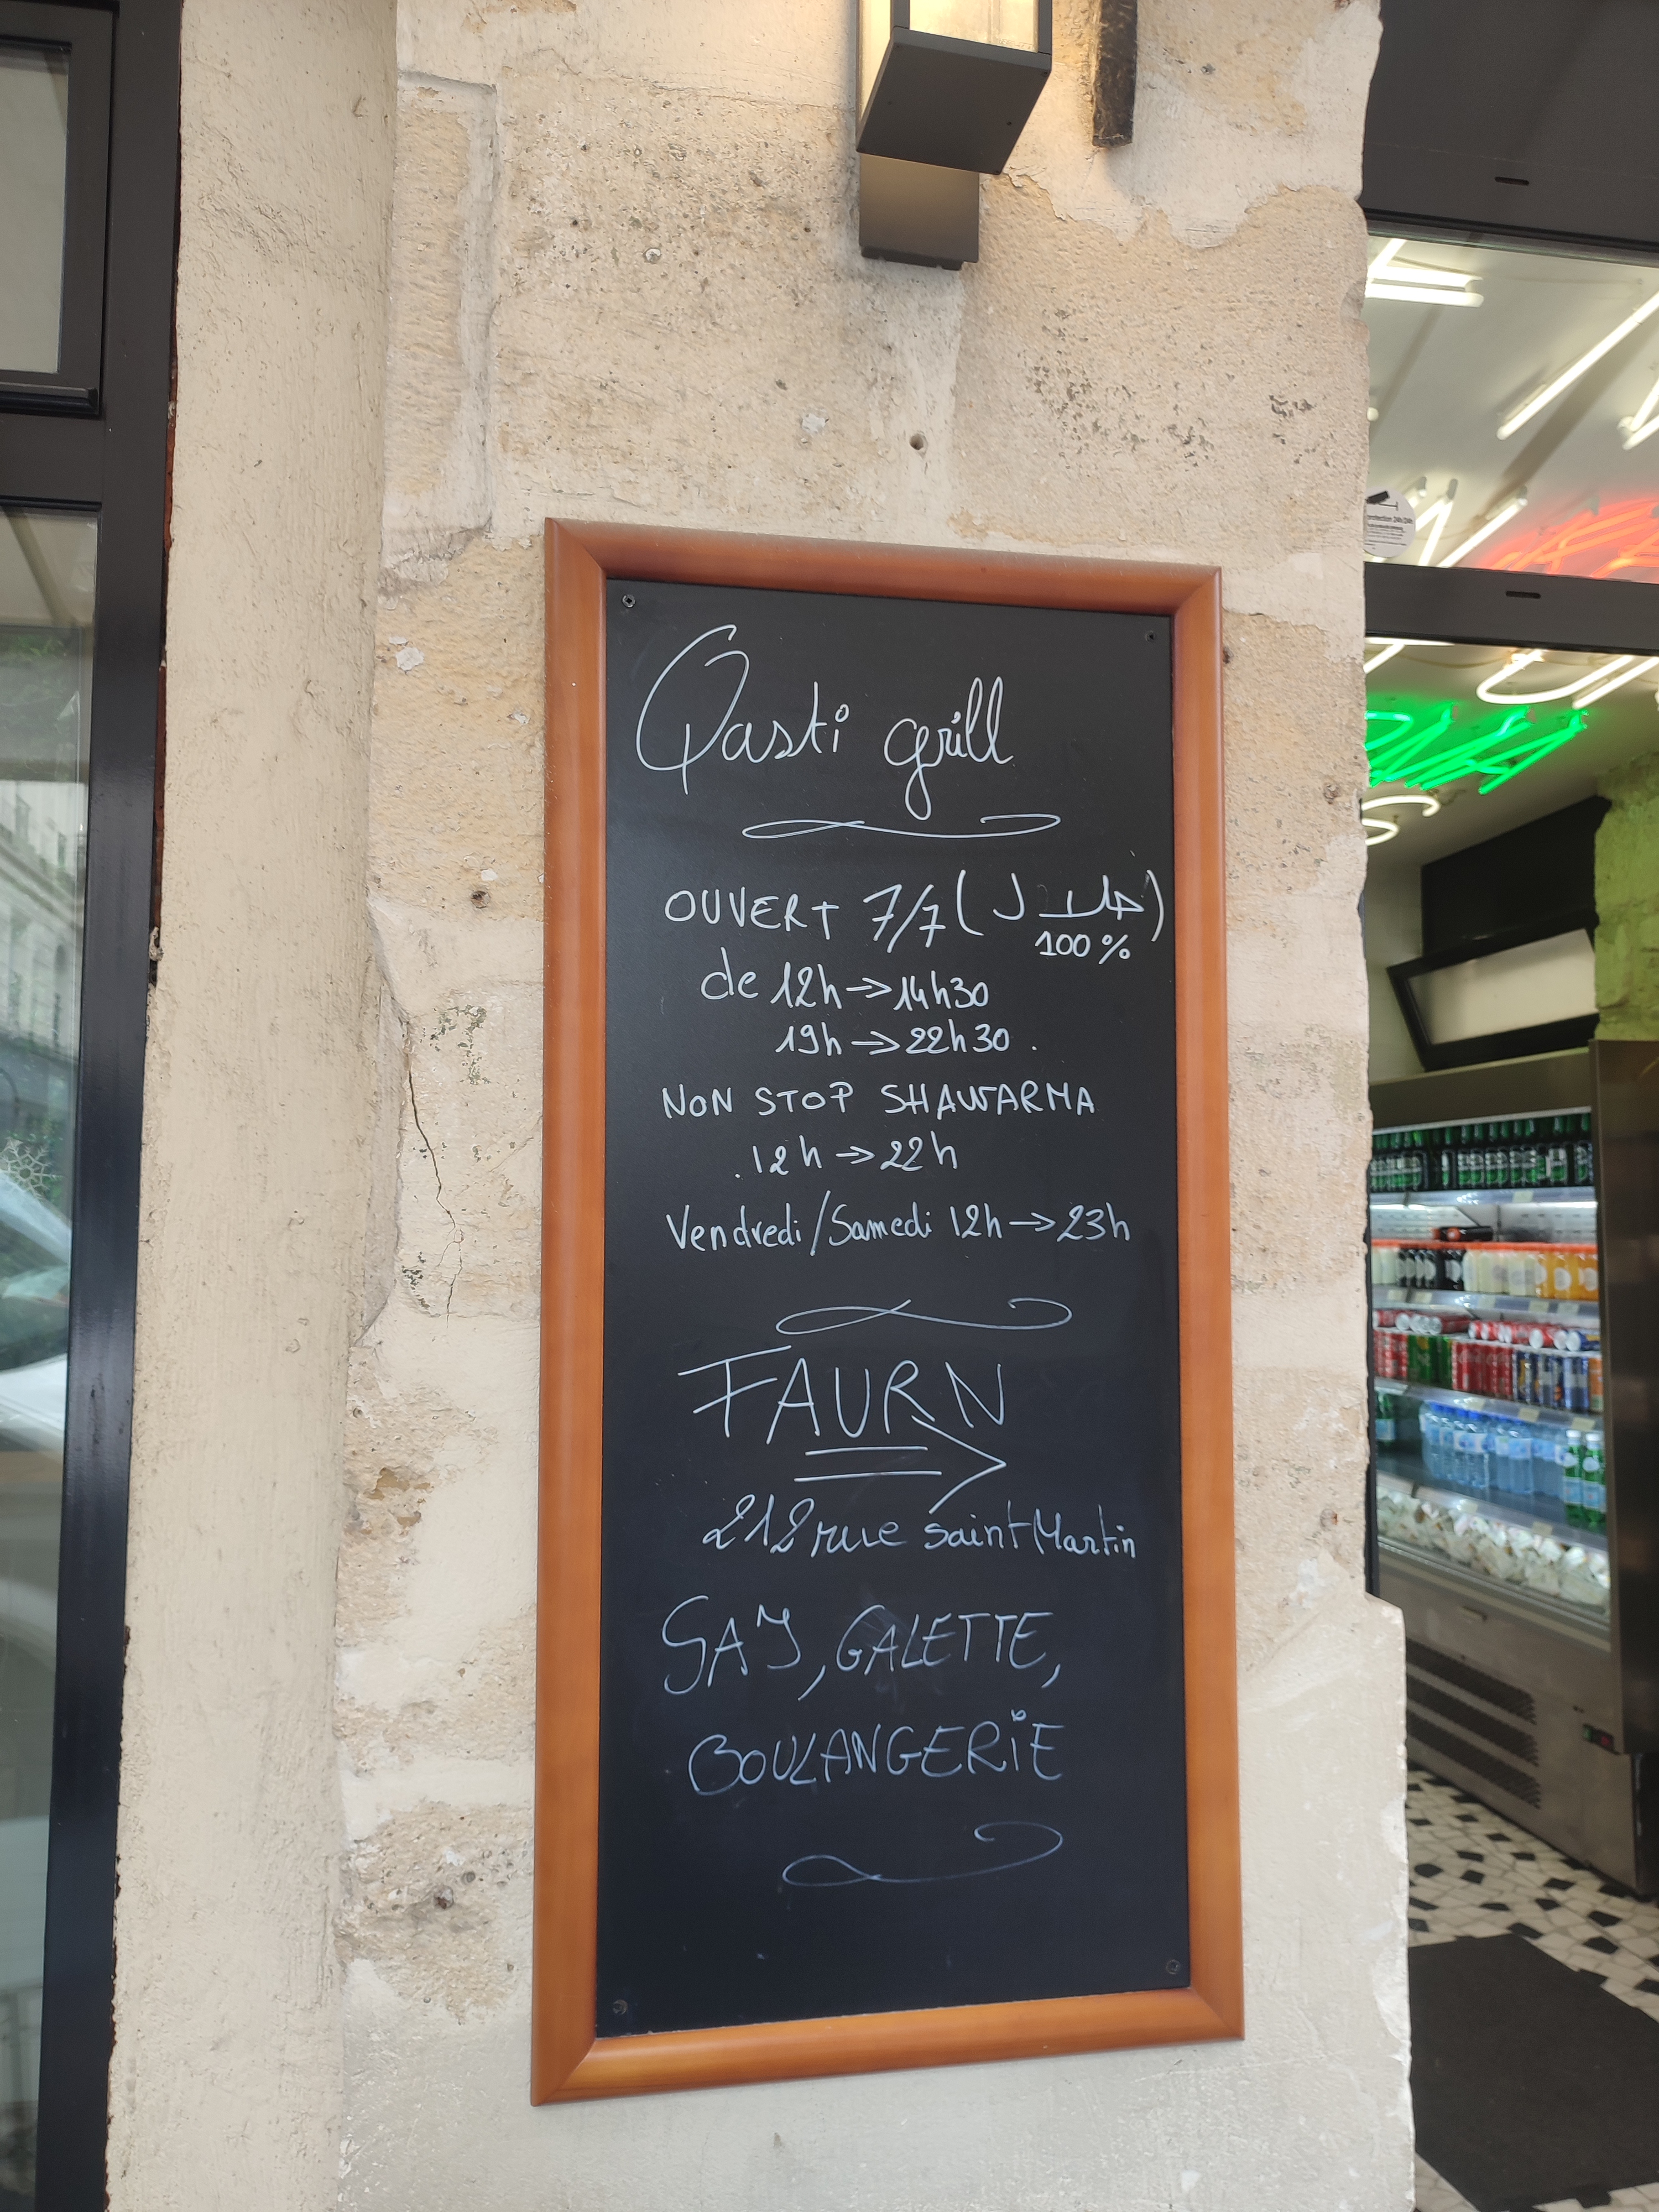 Qasti grill
OUVERT 7/7 (حلال)
100%
de 12h → 14h30
19h → 22h30.
NON STOP SHAWARMA
12h → 22h
Vendredi/Samedi 12h → 23h
FAURN
212 rue saint Martin
SAJ, GALETTE,
BOULANGERIE